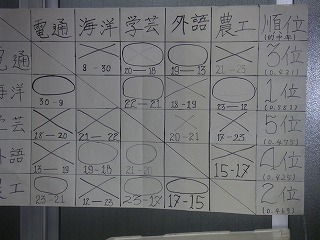 電通 海洋 学芸 外語 農工 順位
電通 8-30 20-18 19-13 21-23 3位
海洋 30-8 22-21 18-19 23-12 1位
学芸 18-20 21-22 20-21 17-23 5位
外語 13-19 19-18 21-20 15-17 4位
農工 23-21 12-23 23-17 17-15 2位